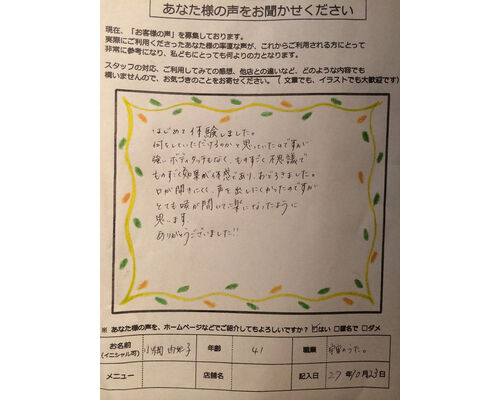 あなた様の声をお聞かせください
現在、「お客様の声」を募集しております。
実際にご利用くださったあなた様の率直な声が、これからご利用される方にとって
非常に参考になり、私どもにとっても何よりの力となります。
スタッフの対応、ご利用してみての感想、他店との違いなど、どのような内容でも
構いませんので、お気づきのことをお寄せください。( 文章でも、イラストでも大歓迎です)
はじめて体験しました。
何をしていただけるのかと思っていたのですが
強いボディタッチもなく、ものすごく不思議で
ものすごく効果が体感であり、おどろきました。
口が開きにくく、声を出しにくかったのですが
とても喉が開いて楽になったように
思います。
ありがとうございました!!
※ あなた様の声を、ホームページなどでご紹介してもよろしいですか? ☑はい □匿名で □ダメ
お名前 年齢 41 職業
(イニシャル可)
メニュー 店舗名 記入日 27年10月23日